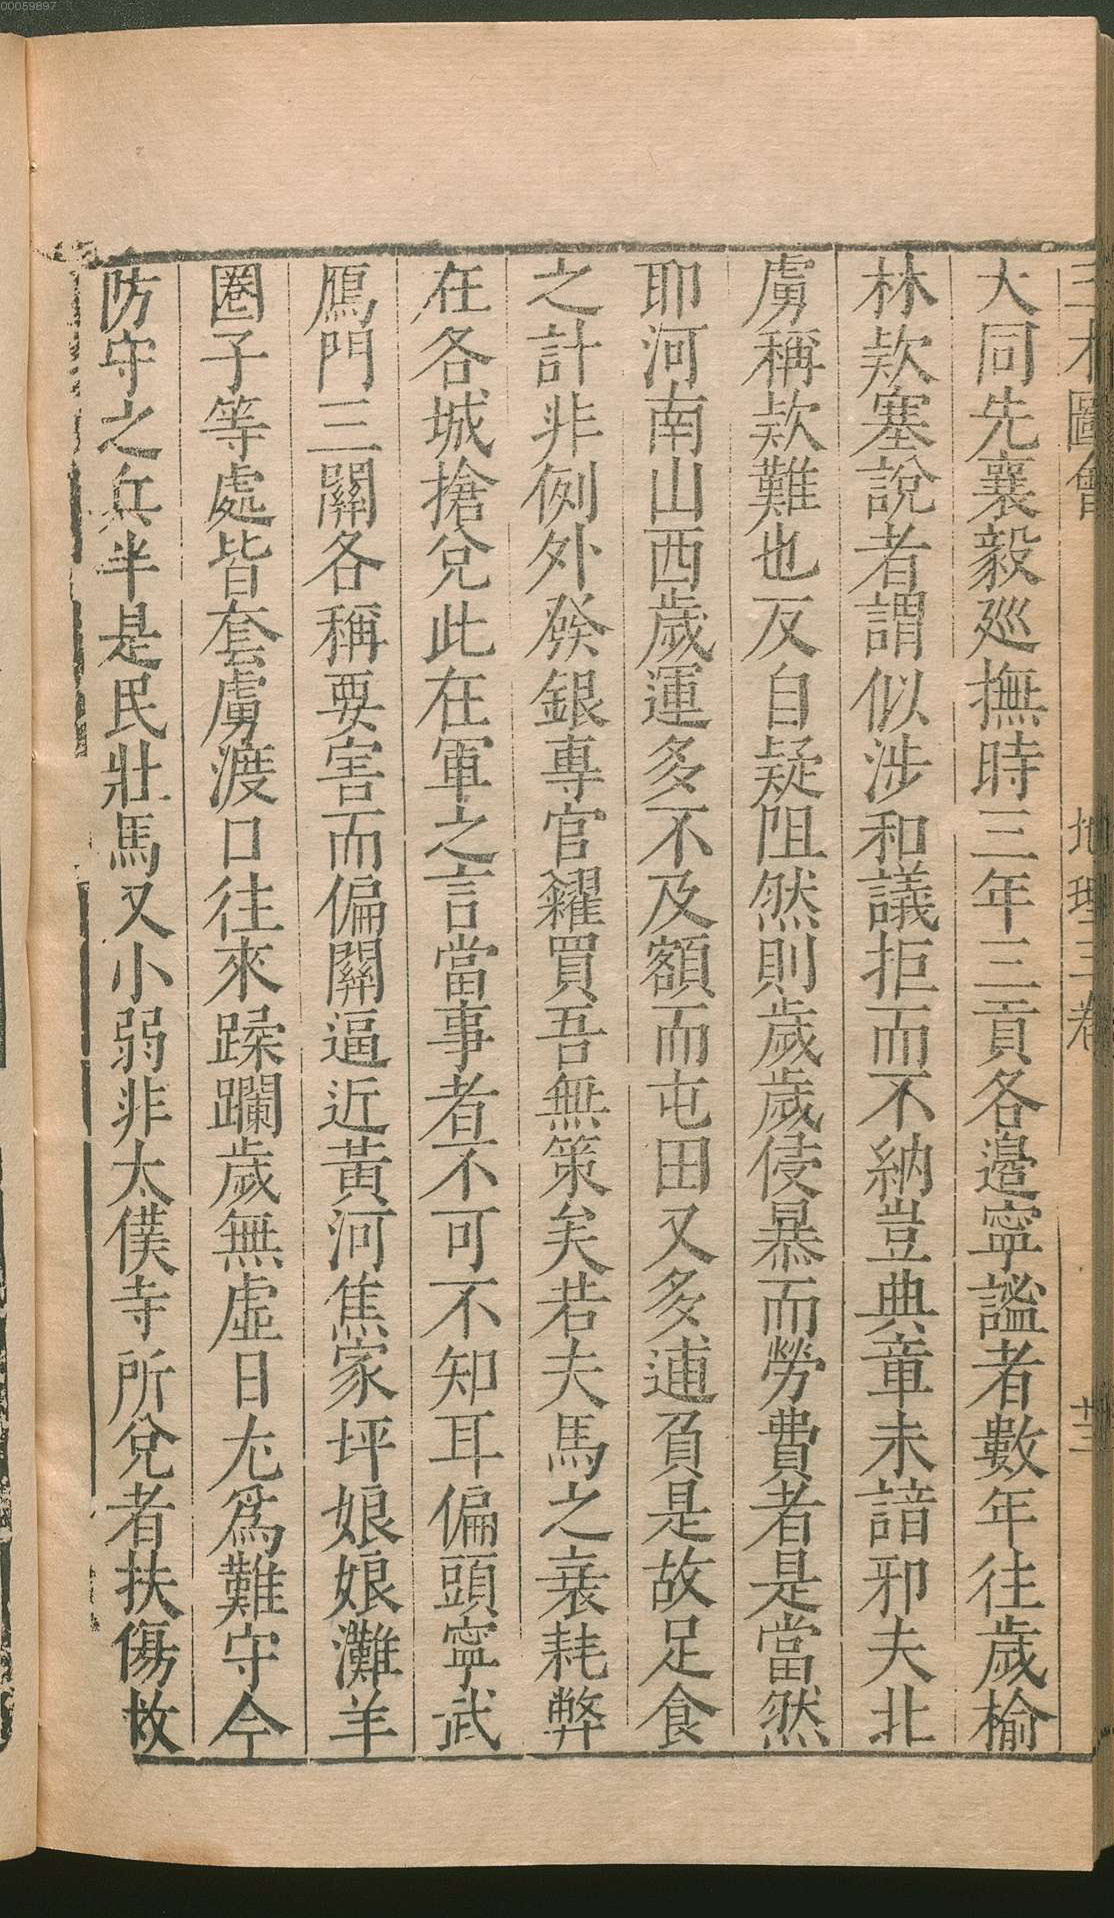 00059897
三才圖會 地理三卷 廿三
大同先襄毅巡撫時三年三貢各邉寧謐者數年往歲榆
林欵塞說者謂似涉和議拒而不納豈典章未諳邪夫北
虜稱欵難也反自疑阻然則歲歲侵暴而勞費者是當然
耶河南山西歲運多不及額而屯田又多逋負是故足食
之計非例外發銀專官糴買吾無策矣若夫馬之衰耗弊
在各城搶兌此在軍之言當事者不可不知耳偏頭寧武
鴈門三關各稱要害而偏關逼近黃河焦家坪娘娘灘羊
圈子等處皆套虜渡口往來蹂躪歲無虛日尤爲難守今
防守之兵半是民壯馬又小弱非太僕寺所兌者扶傷救